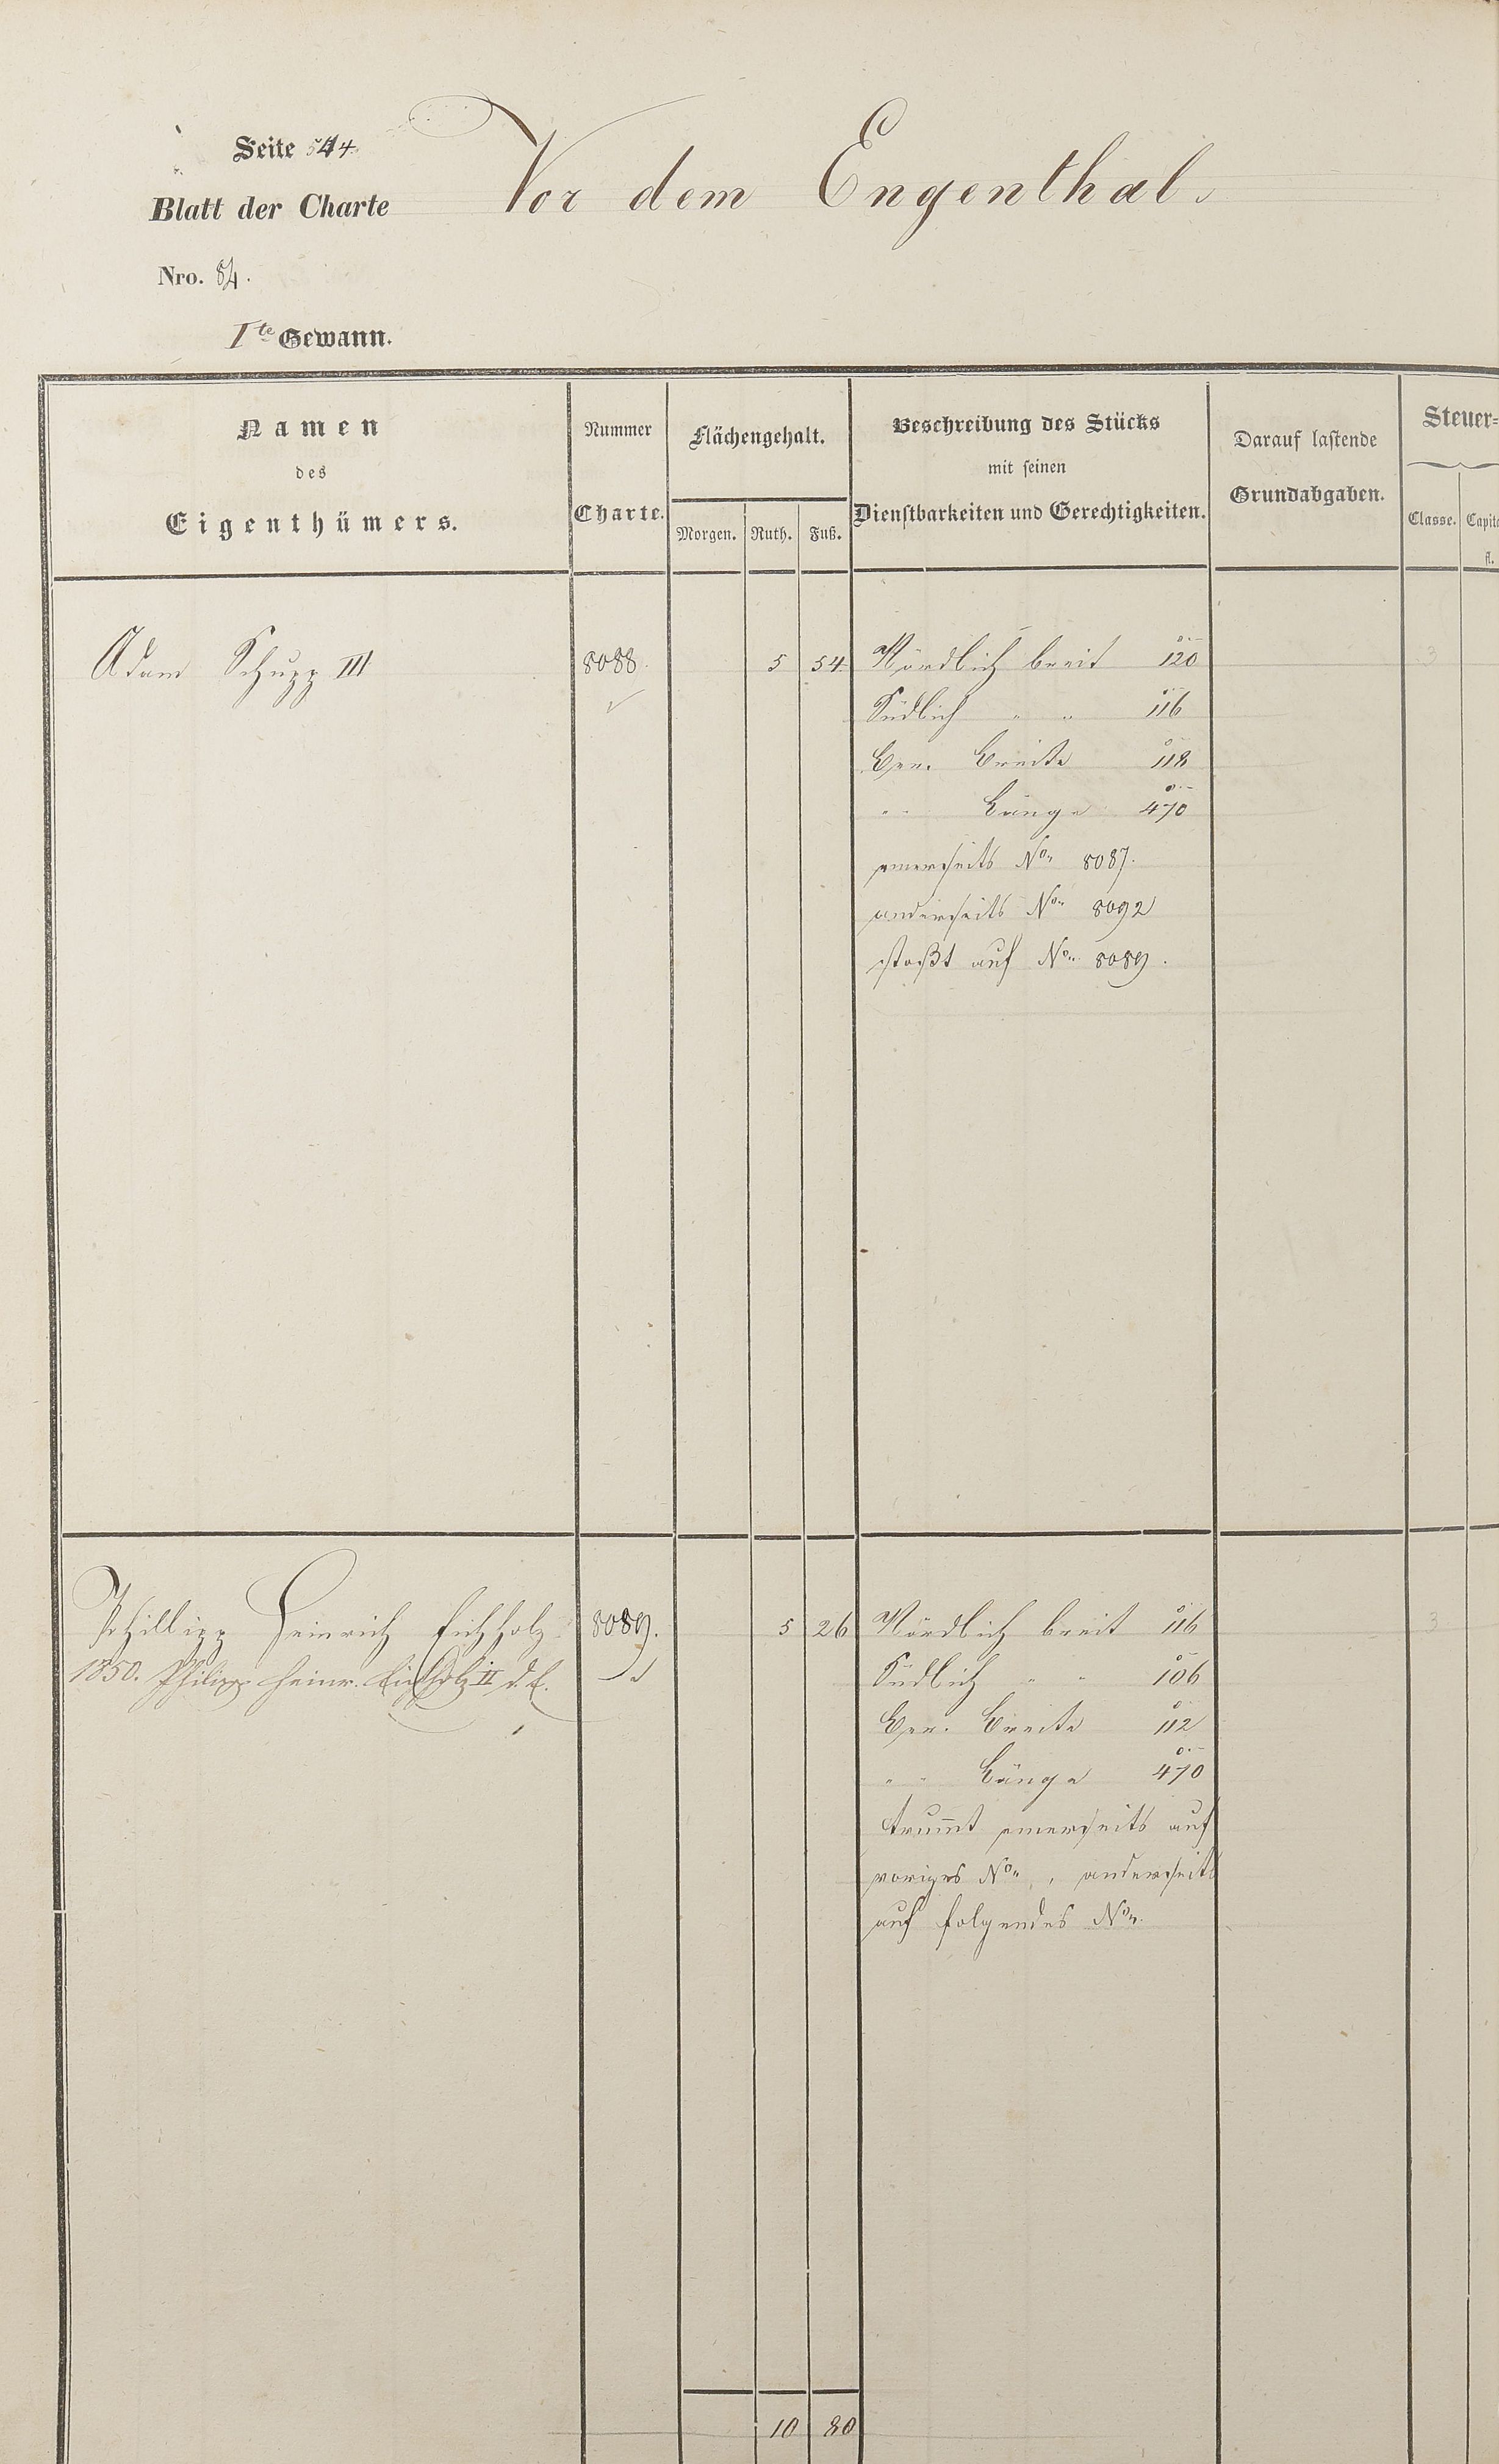 Seite 544
Vor dem Engenthal.
Blatt der Charte
Nro. 84.
Ite Gewann.
Namen
des
Eigenthümers.
Nummer
Charte.
Flächengehalt.
Morgen. Ruth. Fuß.
Beschreibung des Stücks
mit seinen
Dienstbarkeiten und Gerechtigkeiten.
Darauf lastende
Grundabgaben.
Steuer-
Classe.
fl.
Adam Schupp III 8088. 5 54. Nördlich breit 120 3
Südlich " " 116
Gen. Breite 118
" " Länge 470
einerseits No. 8087.
anderseits No. 8092
stoßt auf No. 8089.
Phillipp Heinrich Eichholz 8089. 5 26 Nördlich breit 116 3
1850. Philipp Heinr. Eichholz II d. E. Südlich " " 106
Breite 112
" " Länge 470
einerseits auf
voriges No., anderseits
auf folgendes No.
10 80